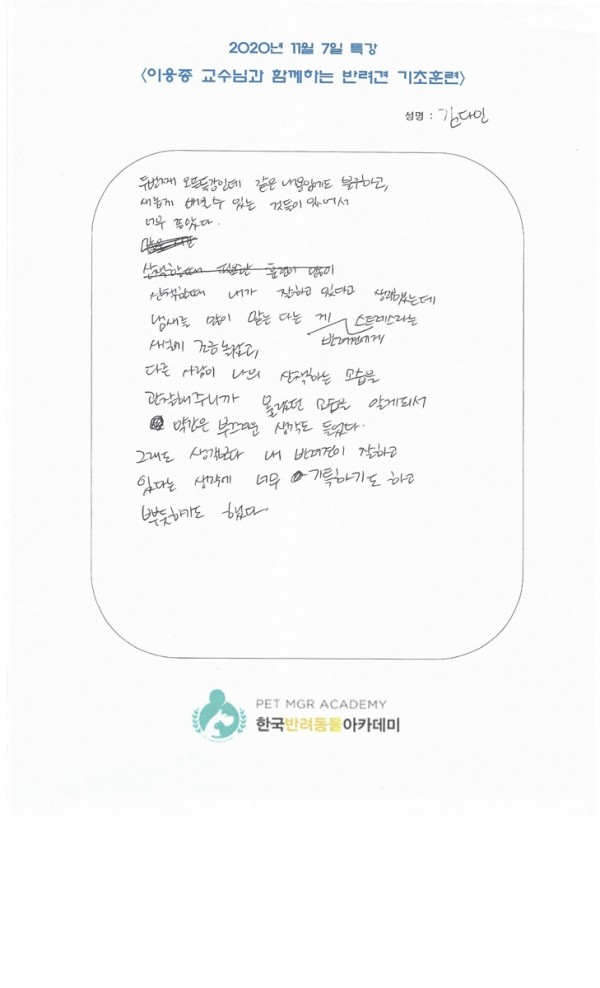 2020년 11월 7일 특강
<이웅종 교수님과 함께하는 반려견 기초훈련>
성명 : 김다인
두번째 오프특강인데 같은 내용임에도 불구하고,
새롭게 배울 수 있는 것들이 있어서
너무 좋았다.
산책할때 훈련이 많이
산책할때 내가 잘하고 있다고 생각했는데
냄새를 많이 맡는 다는 게 스트레스라는
반려견에게
새삼 조금 놀랐고,
다른 사람이 나의 산책하는 모습을
관찰해주니까 몰랐던 모습을 알게되서
약간은 부끄러운 생각도 들었다.
그래도 생각보다 내 반려견이 잘하고
있다는 생각에 너무 기특하기도 하고
뿌듯하기도 했다.
PET MGR ACADEMY
한국반려동물아카데미